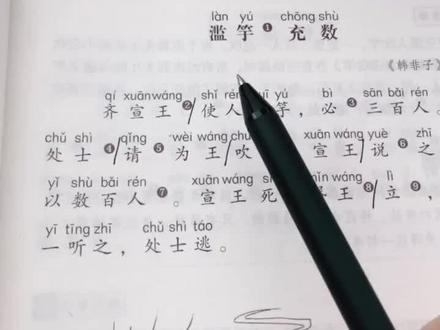 làn yú chōng shù
滥 竽 ❶ 充 数
《韩非子》
qí xuānwáng shǐ rén yú bì sān bǎi rén
齐 宣 王 ❷ 使 人 竽 , 必 ❸ 三 百 人 。
chǔ shì qǐng wèi wáng xuān wáng yuè zhī
处 士 ❹ 请 ❺ 为 王 吹 宣 王 说 ❻ 之
yǐ shù bǎi rén xuān wáng wáng lì
以 数 百 人 ❼ 。 宣 王 死 王 ❽ 立 ❾ ,
yī tīng zhī chǔ shì táo
一 听 之 , 处 士 逃 。